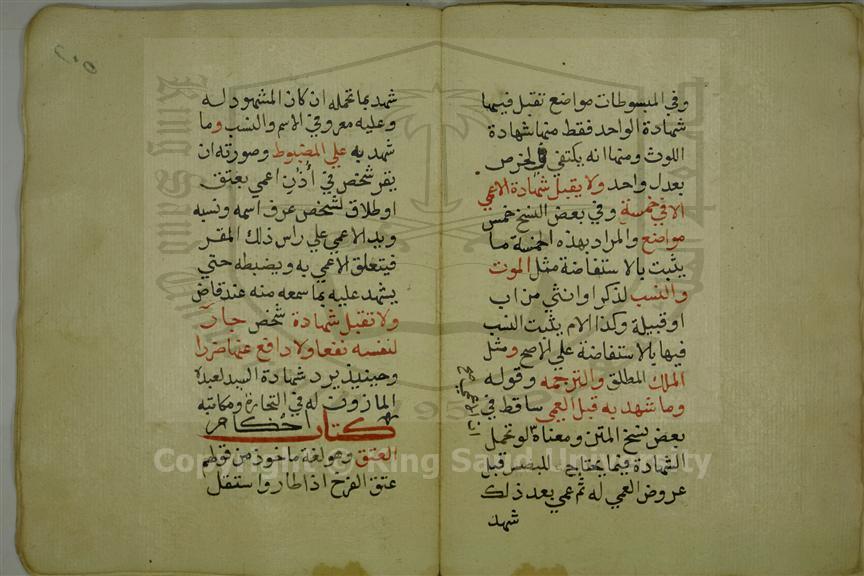 وفي المبسوطات مواضع تقبل فيها
شهادة الواحد فقط منها شهادة
اللوث ومنها انه يكتفي في الخرص
بعدل واحد ولا يقبل شهادة الاعمي
الا في خمسة وفي بعض النسخ خمس
مواضع والمراد بهذه الخمسة ما
يثبت بالاستفاضة مثل الموت
والنسب لذكر او انثي من اب
او قبيلة وكذا الام يثبت النسب
فيها بالاستفاضة علي الاصح ومثل
الملك المطلق والترجمه وقوله
وما شهد به قبل العمي ساقط في
بعض نسخ المتن ومعناه لو تحمل
الشهادة فيما يحتاج للبصر قبل
عروض العمي له ثم عمي بعد ذلك
شهد
شهد بما تحمله ان كان المشهود له
وعليه معروفي الاسم والنسب وما
شهد به علي المضبوط وصورته ان
يقر شخص في اُذُن اعمي بعتق
او طلاق لشخص عرف اسمه ونسبه
ويد الاعمي علي راس ذلك المقر
فيتعلق الاعمي به ويضبطه حتي
يشهد عليه بما سمعه منه عند قاض
ولا تقبل شهادة شخص جارّ
لنفسه نفعا ولا دافع عنها ضررا
وحينيذ يرد شهادة السيد لعبده
الماذون له في التجارة ومكاتبه
كتاب احكام
العتق وهو لغة ماخوذ من قولهم
عتق الفرخ اذا طار واستقل
Copyright © King Saud University
King Saud University
1957